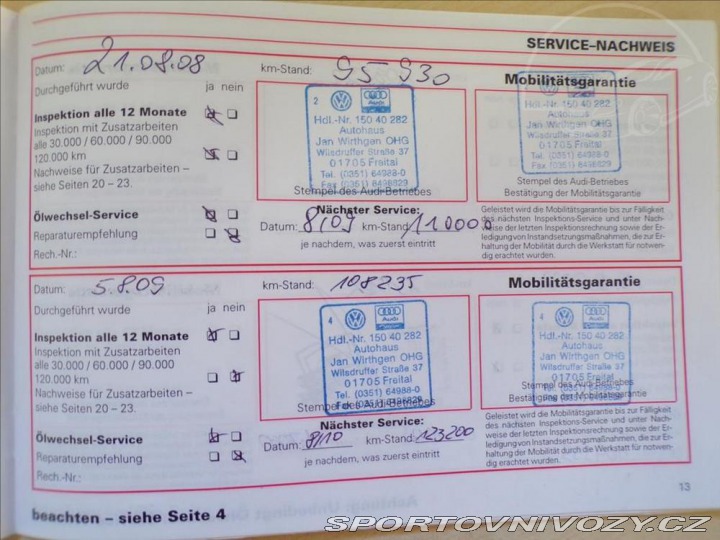 SERVICE–NACHWEIS
Datum: 21.08.08
km-Stand: 95 930
Mobilitätsgarantie
Durchgeführt wurde ja nein
Inspektion alle 12 Monate
Inspektion mit Zusatzarbeiten
alle 30.000 / 60.000 / 90.000
120.000 km
Nachweise für Zusatzarbeiten –
siehe Seiten 20 – 23.
2
Hdl.-Nr. 150 40 282
Autohaus
Jan Wirthgen OHG
Wilsdruffer Straße 37
01705 Freital
Tel. (0351) 64988-0
Fax (0351) 6498829
Stempel des Audi-Betriebes
2
Hdl.-Nr. 150 40 282
Autohaus
Jan Wirthgen OHG
Wilsdruffer Straße 37
01705 Freital
Tel. (0351) 64988-0
Fax (0351) 6498829
Stempel des Audi-Betriebes
Bestätigung der Mobilitätsgarantie
Ölwechsel-Service
Reparaturempfehlung
Rech.-Nr.:
Nächster Service:
Datum: 8/09 km-Stand: 111000
je nachdem, was zuerst eintritt
Geleistet wird die Mobilitätsgarantie bis zur Fälligkeit
des nächsten Inspektions-Service und unter Nach-
weise der letzten Inspektionsrechnung sowie der Er-
ledigung von Instandsetzungsmaßnahmen, die zur Er-
haltung der Mobilität durch die Werkstatt für notwen-
dig erachtet wurden.
Datum: 5.8.09
km-Stand: 108235
Mobilitätsgarantie
Durchgeführt wurde ja nein
Inspektion alle 12 Monate
Inspektion mit Zusatzarbeiten
alle 30.000 / 60.000 / 90.000
120.000 km
Nachweise für Zusatzarbeiten –
siehe Seiten 20 – 23.
4
Audi
Hdl.-Nr. 150 40 282
Autohaus
Jan Wirthgen OHG
Wilsdruffer Straße 37
01705 Freital
Tel. (0351) 64988-0
Fax (0351) 6498829
Stempel des Audi-Betriebes
4
Audi
Hdl.-Nr. 150 40 282
Autohaus
Jan Wirthgen OHG
Wilsdruffer Straße 37
01705 Freital
Tel. (0351) 64988-0
Stempel des Audi-Betriebes
Bestätigung der Mobilitätsgarantie
Ölwechsel-Service
Reparaturempfehlung
Rech.-Nr.:
Nächster Service:
Datum: 8/10 km-Stand: 123200
je nachdem, was zuerst eintritt
Geleistet wird die Mobilitätsgarantie bis zur Fälligkeit
des nächsten Inspektions-Service und unter Nach-
weise der letzten Inspektionsrechnung sowie der Er-
ledigung von Instandsetzungsmaßnahmen, die zur Er-
haltung der Mobilität durch die Werkstatt für notwen-
dig erachtet wurden.
13
beachten – siehe Seite 4
SPORTOVNIVOZY.CZ